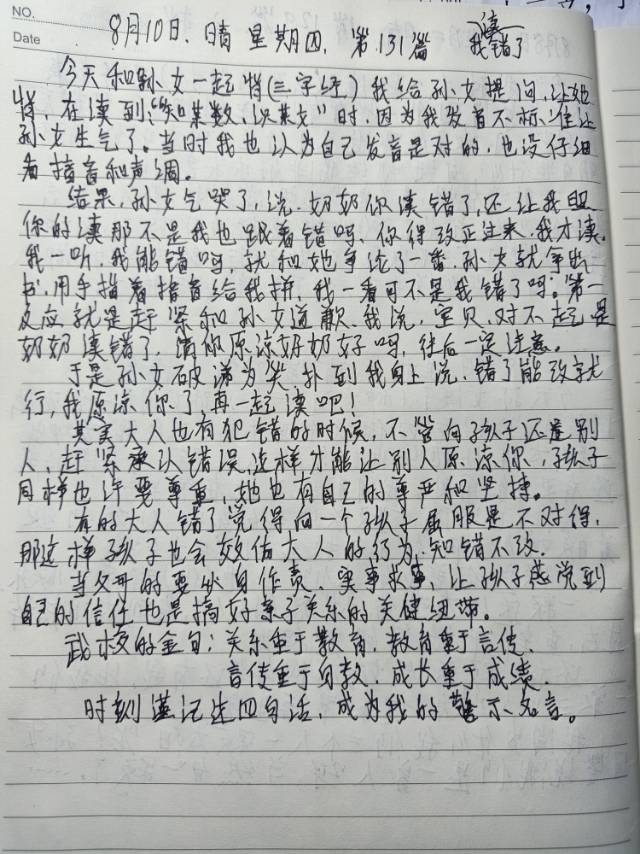 NO.
Date
8月10日.晴 星期四.第131篇 读
我错了
今天和孙女一起特(三字经)我给孙女提问,让她
特,在读到:"知某数,识某文"时,因为我发音不标准让
孙女生气了。当时我也认为自己发音是对的,也没仔细
看拼音和声调。
结果,孙女气哭了,说.奶奶你读错了,还让我跟
你的读那不是我也跟着错吗、你得改正过来.我才读.
我一听.我能错吗,就和她争论了一番.孙女就拿出
书.用手指着拼音给我拼.我一看可不是我错了吗。第一
反应就是赶紧和孙女道歉.我说,宝贝.对不起是
奶奶读错了,请你原谅奶奶好吗,往后一定注意。
于是孙女破涕为笑.扑到我身上说.错了能改就
行,我原谅你了,再一起读吧!
其实大人也有犯错的时候,不管向孩子还是别
人,赶紧承认错误,这样才能让别人原谅你,孩子
同样也许要尊重,她也有自己的尊严和坚持。
有的大人错了觉得向一个孩子屈服是不对得,
那这样孩子也会效仿大人的行为.知错不改.
当父母的要以身作责.实事求事,让孩子感觉到
自己的信任也是搞好亲子关系的关健纽带。
武校的金句:关系重于教育.教育重于言传.
言传重于身教.成长重于成绩.
时刻谨记这四句话.成为我的警示名言。